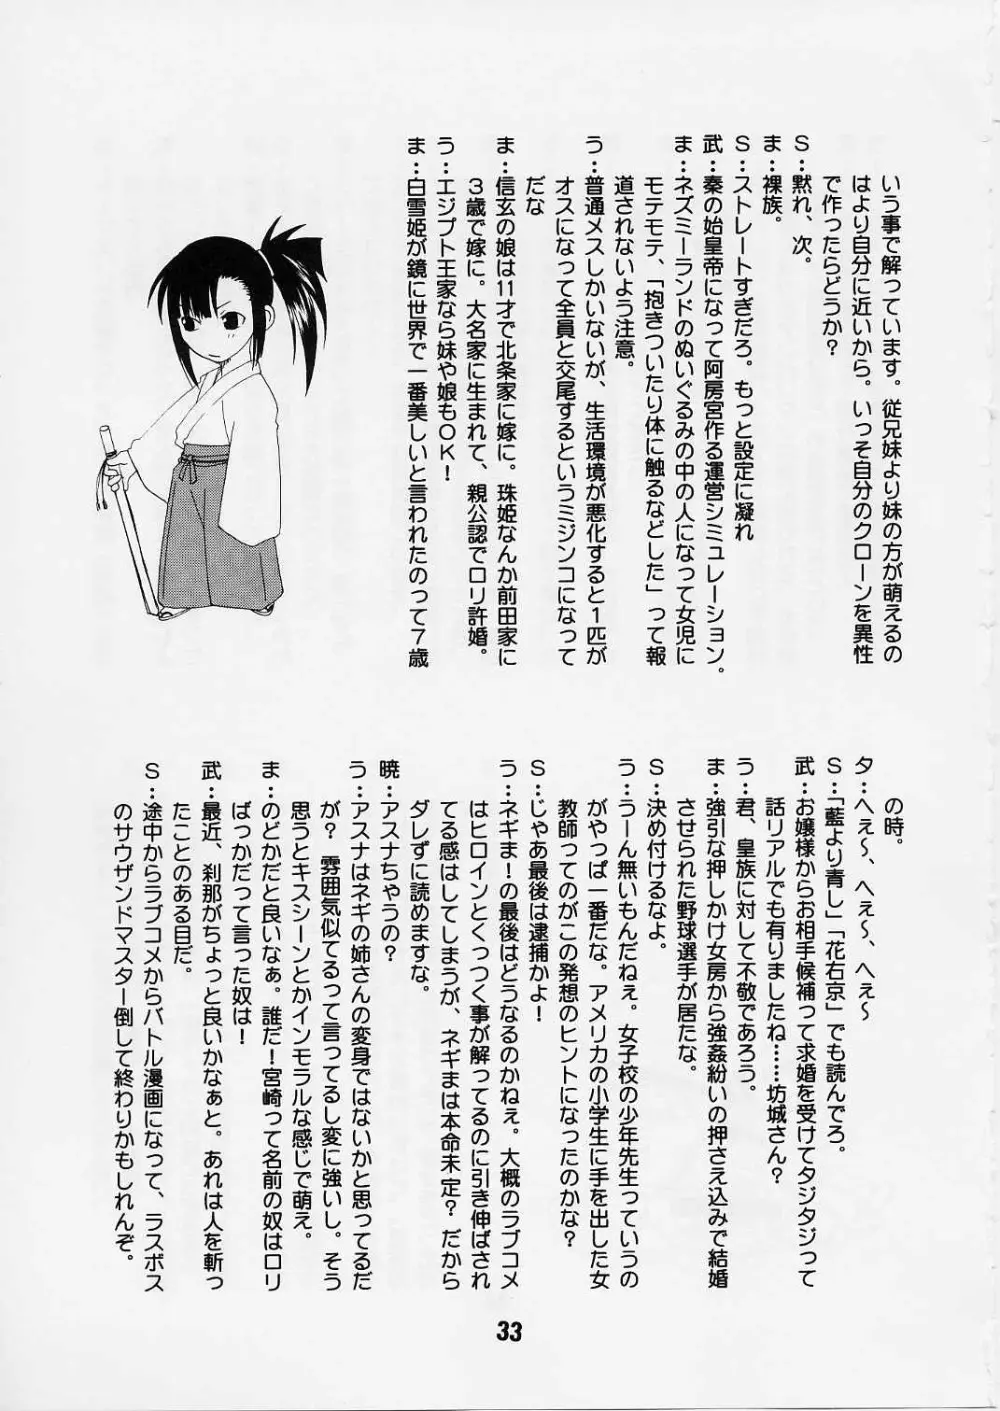 いう事で解っています。従兄妹より妹の方が萌えるの
はより自分に近いから。いっそ自分のクローンを異性
で作ったらどうか？
Ｓ：黙れ、次。
ま：裸族。
Ｓ：ストレートすぎだろ。もっと設定に凝れ
武：秦の始皇帝になって阿房宮作る運営シミュレーション。
ま：ネズミーランドのぬいぐるみの中の人になって女児に
モテモテ、「抱きついたり体に触るなどした」って報
道されないよう注意。
う：普通メスしかいないが、生活環境が悪化すると１匹が
オスになって全員と交尾するというミジンコになって
だな
ま：信玄の娘は11才で北条家に嫁に。珠姫なんか前田家に
３歳で嫁に。大名家に生まれて、親公認でロリ許婚。
う：エジプト王家なら妹や娘もＯＫ！
ま：白雪姫が鏡に世界で一番美しいと言われたのって７歳
の時。
タ：へぇ～、へぇ～、へぇ～
Ｓ：「藍より青し」「花右京」でも読んでろ。
武：お嬢様からお相手候補って求婚を受けてタジタジって
話リアルでも有りましたね……坊城さん？
う：君、皇族に対して不敬であろう。
ま：強引な押しかけ女房から強姦紛いの押さえ込みで結婚
させられた野球選手が居たな。
Ｓ：決め付けるなよ。
う：うーん無いもんだねぇ。女子校の少年先生っていうの
がやっぱ一番だな。アメリカの小学生に手を出した女
教師ってのがこの発想のヒントになったのかな？
Ｓ：じゃあ最後は逮捕かよ！
う：ネギま！の最後はどうなるのかねぇ。大概のラブコメ
はヒロインとくっつく事が解ってるのに引き伸ばされ
てる感はしてしまうが、ネギまは本命未定？だから
ダレずに読めますな。
暁：アスナちゃうの？
う：アスナはネギの姉さんの変身ではないかと思ってるだ
が？　雰囲気似てるって言ってるし変に強いし。そう
思うとキスシーンとかインモラルな感じで萌え。
ま：のどかだと良いなぁ。誰だ！宮崎って名前の奴はロリ
ばっかだって言った奴は！
武：最近、刹那がちょっと良いかなぁと。あれは人を斬っ
たことのある目だ。
Ｓ：途中からラブコメからバトル漫画になって、ラスボス
のサウザンドマスター倒して終わりかもしれんぞ。
33